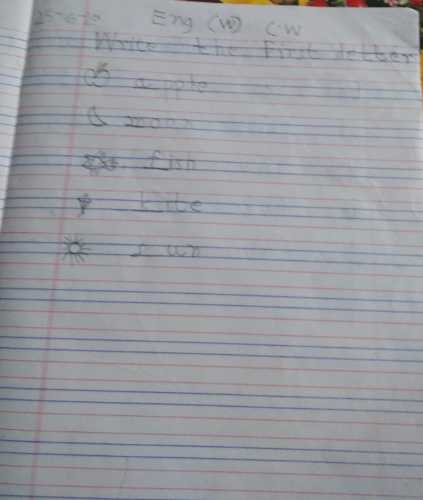 25-6-20 Eng (W) C.W
Write the First letter
apple
moon
fish
kite
sun